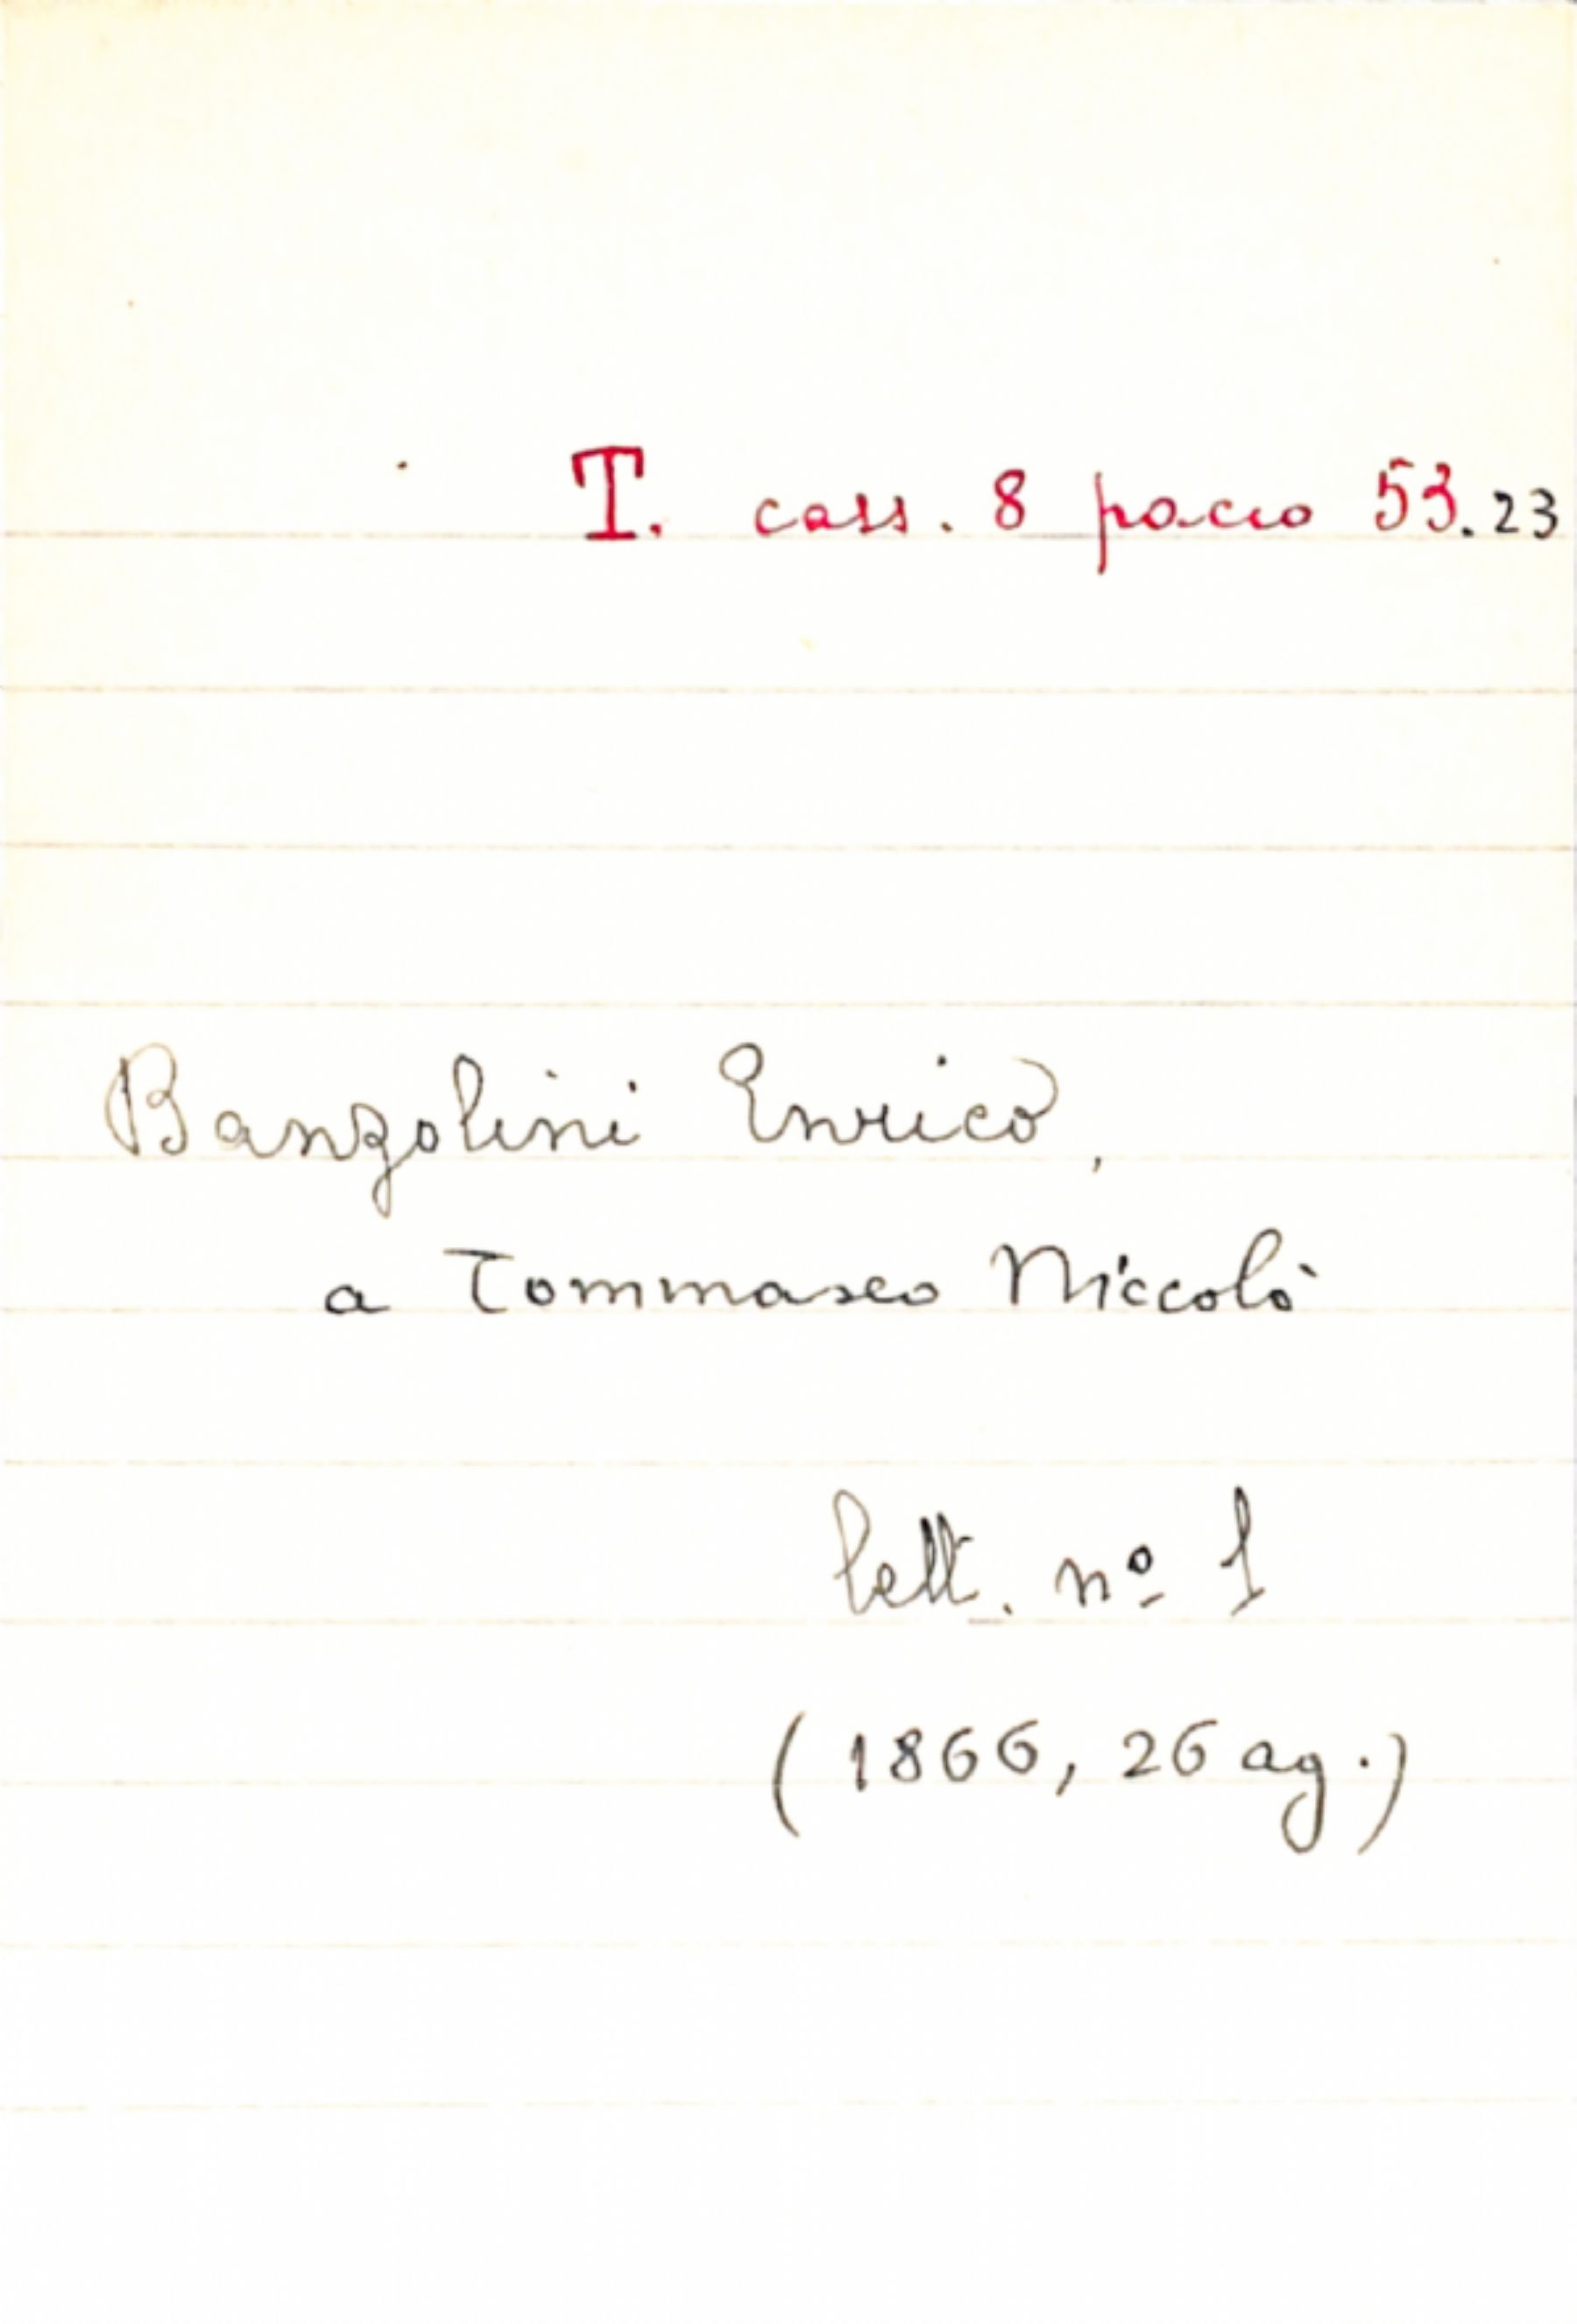 T. cass. 8 pacco 53.23
Banzolini Enrico,
a Tommaseo Niccolò
lett. nº 1
(1866, 26 ag.)